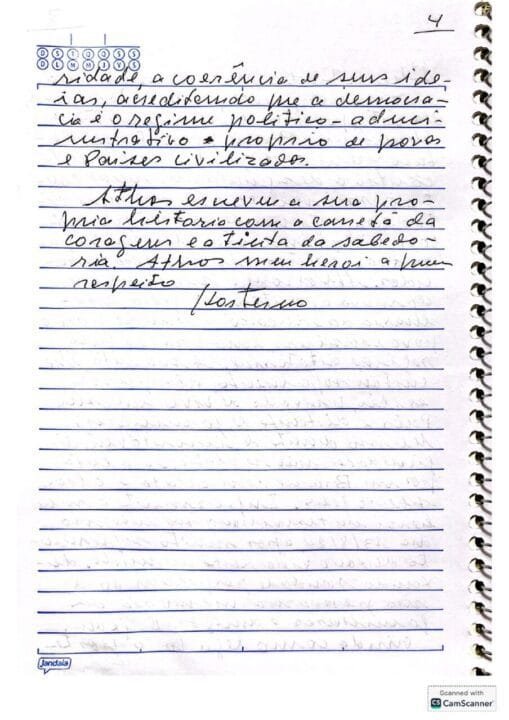 4
D S T Q Q S S
D L M M J V S
ridade, a coerência de suas ide-
ias, acreditando que a democra-
cia é o regime politico-admi-
nistrativo proprio de povos
e Paises civilizados.
Athos escreveu a sua pro-
pria historia com a caneta da
coragem e a tinta da sabedo-
ria. Athos meu heroi a quem
respeito
Jandaia
Scanned with
CS CamScanner